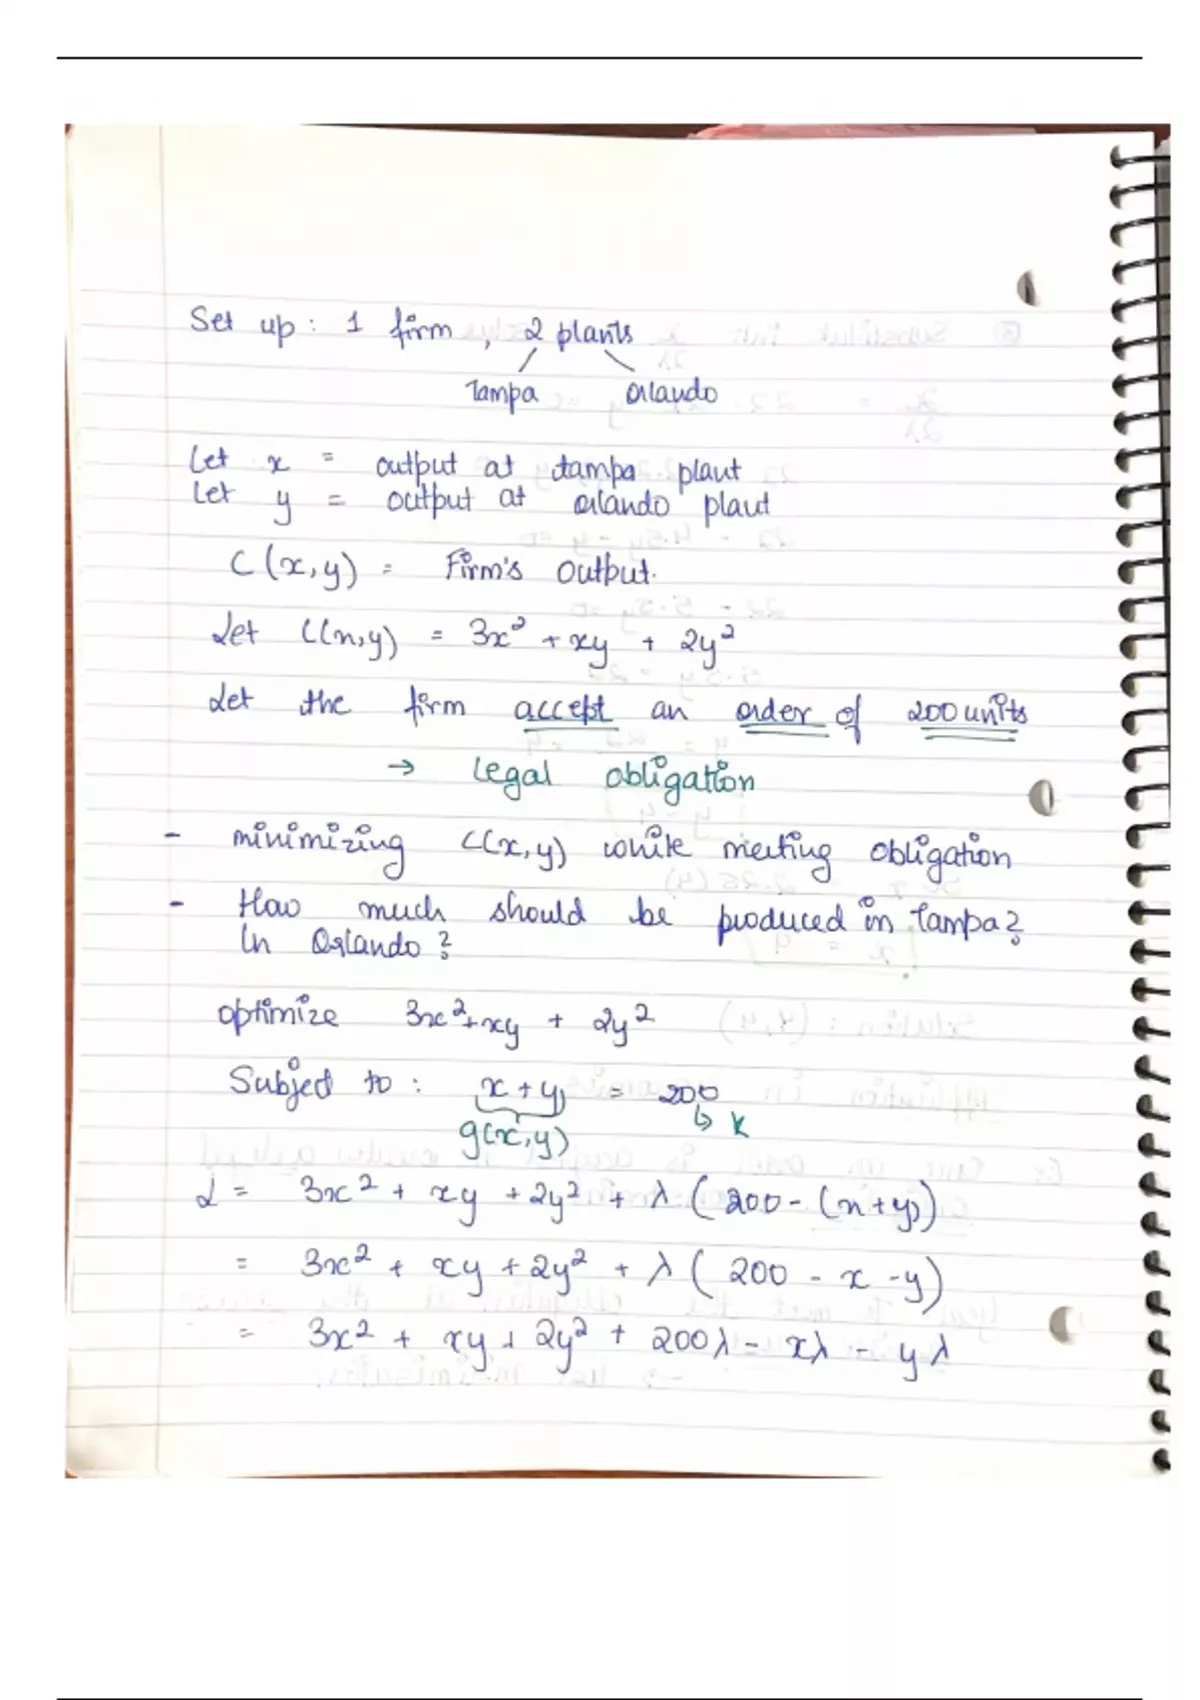 Set up : 1 firm, 2 plants
Tampa Orlando
Let x = output at tampa plant
Let y = output at orlando plant
C(x,y) = Firm's Output.
Let C(x,y) = 3x² + xy + 2y²
Let the firm accept an order of 200 units
→ legal obligation
- minimizing C(x,y) while meeting obligation
- How much should be produced in Tampa?
In Orlando?
optimize 3x²+xy + 2y²
Subject to : x + y = 200
g(x,y) ↳ K
L = 3x² + xy + 2y² + λ (200 - (x+y))
= 3x² + xy + 2y² + λ (200 - x - y)
= 3x² + xy + 2y² + 200λ - xλ - yλ